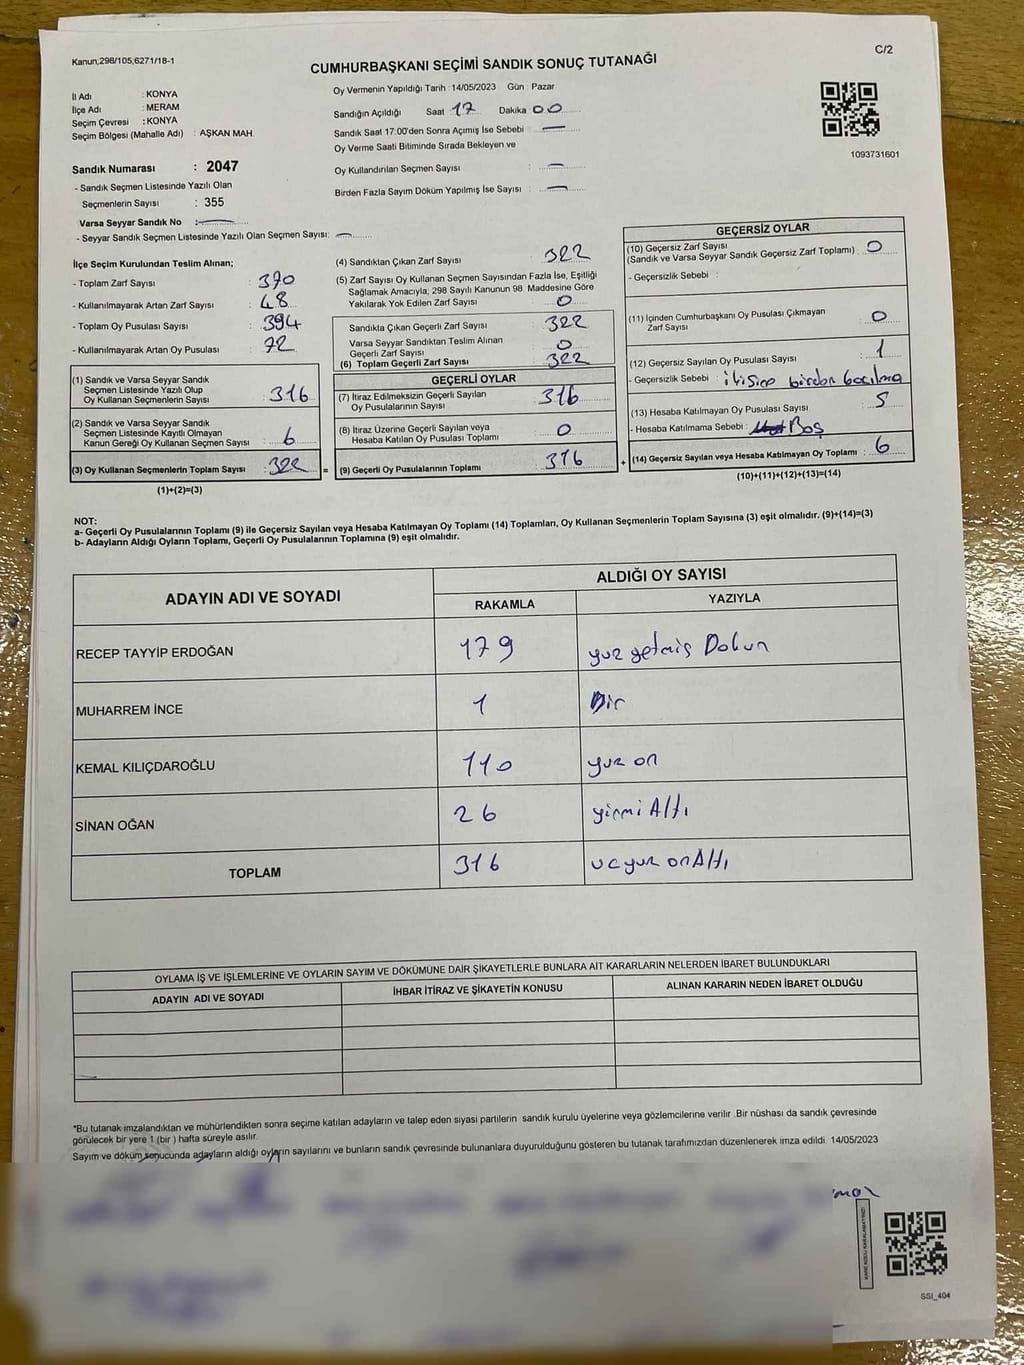 Kanun;298/105,6271/18-1
C/2
CUMHURBAŞKANI SEÇİMİ SANDIK SONUÇ TUTANAĞI
İl Adı : KONYA
İlçe Adı : MERAM
Seçim Çevresi : KONYA
Seçim Bölgesi (Mahalle Adı) : AŞKAN MAH.
Sandık Numarası : 2047
- Sandık Seçmen Listesinde Yazılı Olan
Seçmenlerin Sayısı : 355
Varsa Seyyar Sandık No : —
- Seyyar Sandık Seçmen Listesinde Yazılı Olan Seçmen Sayısı: —
Oy Vermenin Yapıldığı Tarih : 14/05/2023 Gün : Pazar
Sandığın Açıldığı Saat 17 Dakika 00
Sandık Saat 17:00'den Sonra Açımış İse Sebebi : —
Oy Verme Saati Bitiminde Sırada Bekleyen ve
Oy Kullandırılan Seçmen Sayısı : —
Birden Fazla Sayım Döküm Yapılmış İse Sayısı : —
1093731601
İlçe Seçim Kurulundan Teslim Alınan;
- Toplam Zarf Sayısı : 370
- Kullanılmayarak Artan Zarf Sayısı : 48
- Toplam Oy Pusulası Sayısı : 394
- Kullanılmayarak Artan Oy Pusulası : 72
(1) Sandık ve Varsa Seyyar Sandık
Seçmen Listesinde Yazılı Olup
Oy Kullanan Seçmenlerin Sayısı : 316
(2) Sandık ve Varsa Seyyar Sandık
Seçmen Listesinde Kayıtlı Olmayan
Kanun Gereği Oy Kullanan Seçmen Sayısı : 6
(3) Oy Kullanan Seçmenlerin Toplam Sayısı : 322 =
(1)+(2)=(3)
(4) Sandıktan Çıkan Zarf Sayısı : 322
(5) Zarf Sayısı Oy Kullanan Seçmen Sayısından Fazla İse, Eşitliği
Sağlamak Amacıyla; 298 Sayılı Kanunun 98. Maddesine Göre
Yakılarak Yok Edilen Zarf Sayısı : 0
Sandıkta Çıkan Geçerli Zarf Sayısı : 322
Varsa Seyyar Sandıktan Teslim Alınan
Geçerli Zarf Sayısı : 0
(6) Toplam Geçerli Zarf Sayısı : 322
GEÇERLİ OYLAR
(7) İtiraz Edilmeksizin Geçerli Sayılan
Oy Pusulalarının Sayısı : 316
(8) İtiraz Üzerine Geçerli Sayılan veya
Hesaba Katılan Oy Pusulalarının Toplamı : 0
(9) Geçerli Oy Pusulalarının Toplamı : 316 +
GEÇERSİZ OYLAR
(10) Geçersiz Zarf Sayısı
(Sandık ve Varsa Seyyar Sandık Geçersiz Zarf Toplamı) : 0
- Geçersizlik Sebebi :
(11) İçinden Cumhurbaşkanı Oy Pusulası Çıkmayan
Zarf Sayısı : 0
(12) Geçersiz Sayılan Oy Pusulası Sayısı : 1
- Geçersizlik Sebebi : ikisine birden basılma
(13) Hesaba Katılmayan Oy Pusulası Sayısı : 5
- Hesaba Katılmama Sebebi : Boş
(14) Geçersiz Sayılan veya Hesaba Katılmayan Oy Toplamı : 6
(10)+(11)+(12)+(13)=(14)
NOT:
a- Geçerli Oy Pusulalarının Toplamı (9) ile Geçersiz Sayılan veya Hesaba Katılmayan Oy Toplamı (14) Toplamları, Oy Kullanan Seçmenlerin Toplam Sayısına (3) eşit olmalıdır. (9)+(14)=(3)
b- Adayların Aldığı Oyların Toplamı, Geçerli Oy Pusulalarının Toplamına (9) eşit olmalıdır.
ADAYIN ADI VE SOYADI
ALDIĞI OY SAYISI
RAKAMLA YAZIYLA
RECEP TAYYİP ERDOĞAN 179 yuz yetmiş Dokun
MUHARREM İNCE 1 Bir
KEMAL KILIÇDAROĞLU 110 yuz on
SİNAN OĞAN 26 yirmi Altı
TOPLAM 316 ucyuz onAltı
OYLAMA İŞ VE İŞLEMLERİNE VE OYLARIN SAYIM VE DÖKÜMÜNE DAİR ŞİKAYETLERLE BUNLARA AİT KARARLARIN NELERDEN İBARET BULUNDUKLARI
ADAYIN ADI VE SOYADI İHBAR İTİRAZ VE ŞİKAYETİN KONUSU ALINAN KARARIN NEDEN İBARET OLDUĞU
*Bu tutanak imzalandıktan ve mühürlendikten sonra seçime katılan adayların ve talep eden siyasi partilerin sandık kurulu üyelerine veya gözlemcilerine verilir .Bir nüshası da sandık çevresinde
görülecek bir yere 1 (bir ) hafta süreyle asılır.
Sayım ve döküm sonucunda adayların aldığı oyların sayılarını ve bunların sandık çevresinde bulunanlara duyurulduğunu gösteren bu tutanak tarafımızdan düzenlenerek imza edildi. 14/05/2023
KARE KODU KARALAMAYINIZ!
SSI_404